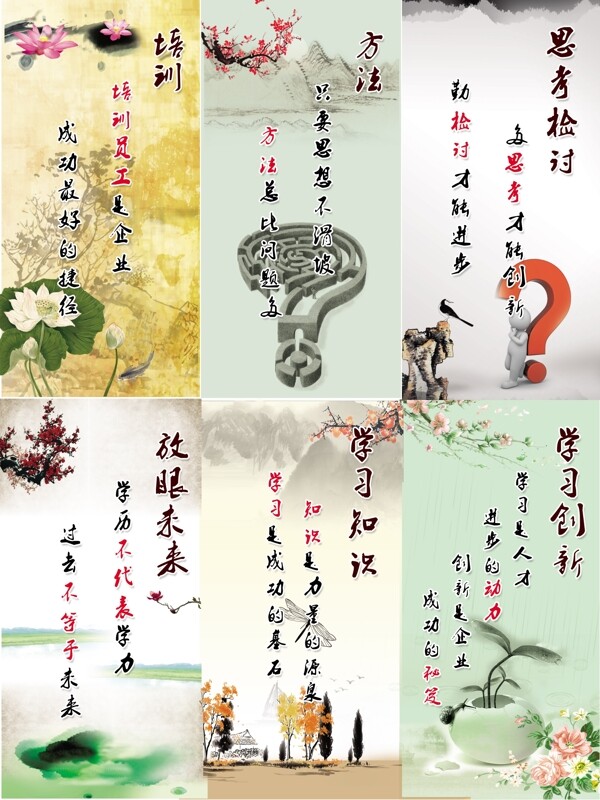 培训
培训员工是企业
成功最好的捷径
方法
只要思想不滑坡
方法总比问题多
思考检讨
多思考才能创新
勤检讨才能进步
放眼未来
学历不代表学力
过去不等于未来
学习知识
知识是力量的源泉
学习是成功的基石
学习创新
学习是人才
进步的动力
创新是企业
成功的秘笈